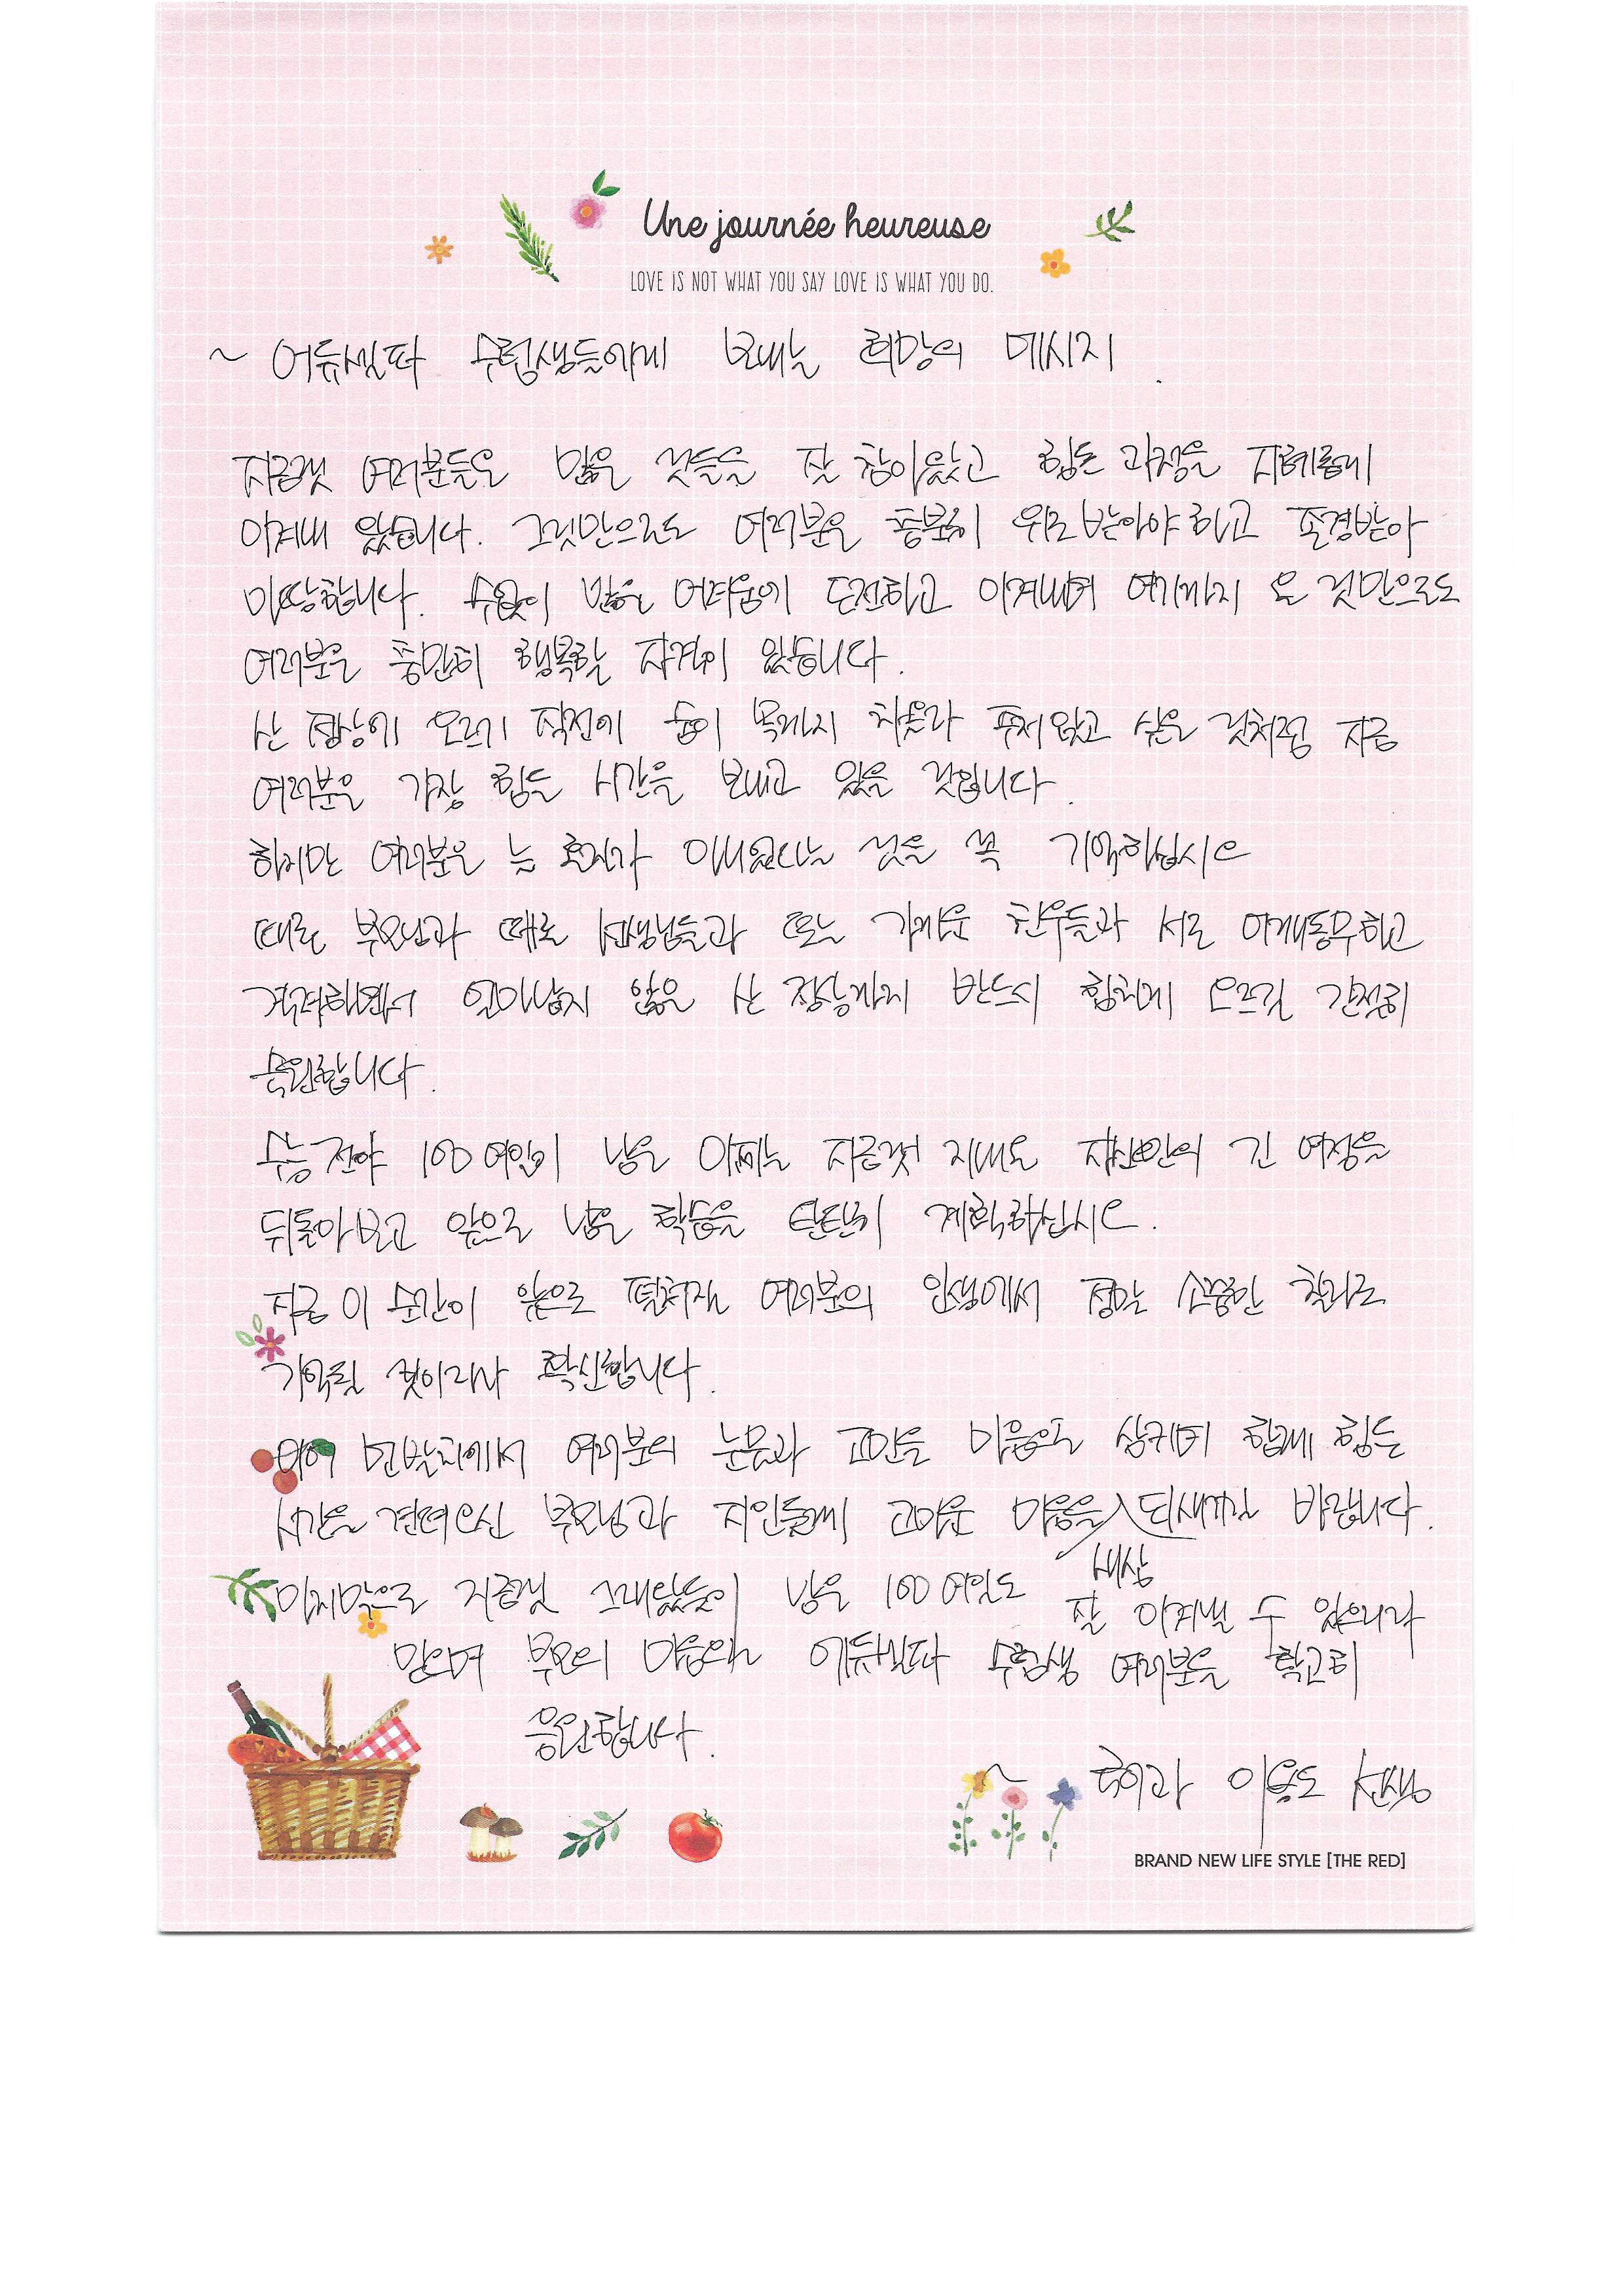 Une journée heureuse
LOVE IS NOT WHAT YOU SAY LOVE IS WHAT YOU DO.
~ 에듀셀파 수험생들에게 보내는 희망의 메시지.
지금껏 여러분들은 많은 것들을 잘 참아왔고 힘든 과정을 지혜롭게
이겨내 왔습니다. 그것만으로도 여러분은 충분히 위로받아야 하고 존경받아
마땅합니다. 수없이 많은 어려움에 도전하고 이겨내며 여기까지 온 것만으로도
여러분은 충만히 행복할 자격이 있습니다.
산 정상에 오르기 직전에 숨이 목까지 차올라 주저앉고 싶은 것처럼 지금
여러분은 가장 힘든 시간을 보내고 있을 것입니다.
하지만 여러분은 늘 혼자가 아니었다는 것을 꼭 기억하십시오
때로 부모님과 때로 선생님들과 또는 가까운 친우들과 서로 어깨동무하고
격려하면서 얼마남지 않은 산 정상까지 반드시 함께 오르길 간절히
축원합니다.
수능 전야 100여일이 남은 이제는 지금껏 지내온 자신만의 긴 여정을
뒤돌아보고 앞으로 남은 학습을 단단히 계획하십시오.
지금 이 순간이 앞으로 펼쳐질 여러분의 인생에서 정말 소중한 찰라로
기억될 것이라 확신합니다.
먼발치에서 여러분의 눈물과 고민을 마음으로 삼키며 함께 힘든
시간을 견뎌오신 부모님과 지인들께 고마운 마음을 되새기길 바랍니다.
세상
마지막으로 지금껏 그래왔듯이 남은 100여일도 잘 이겨낼 수 있으리라
믿으며 부모의 마음으로 에듀셀파 수험생 여러분을 확고히
응원합니다.
~ 국어과 이용도 선생
BRAND NEW LIFE STYLE [THE RED]